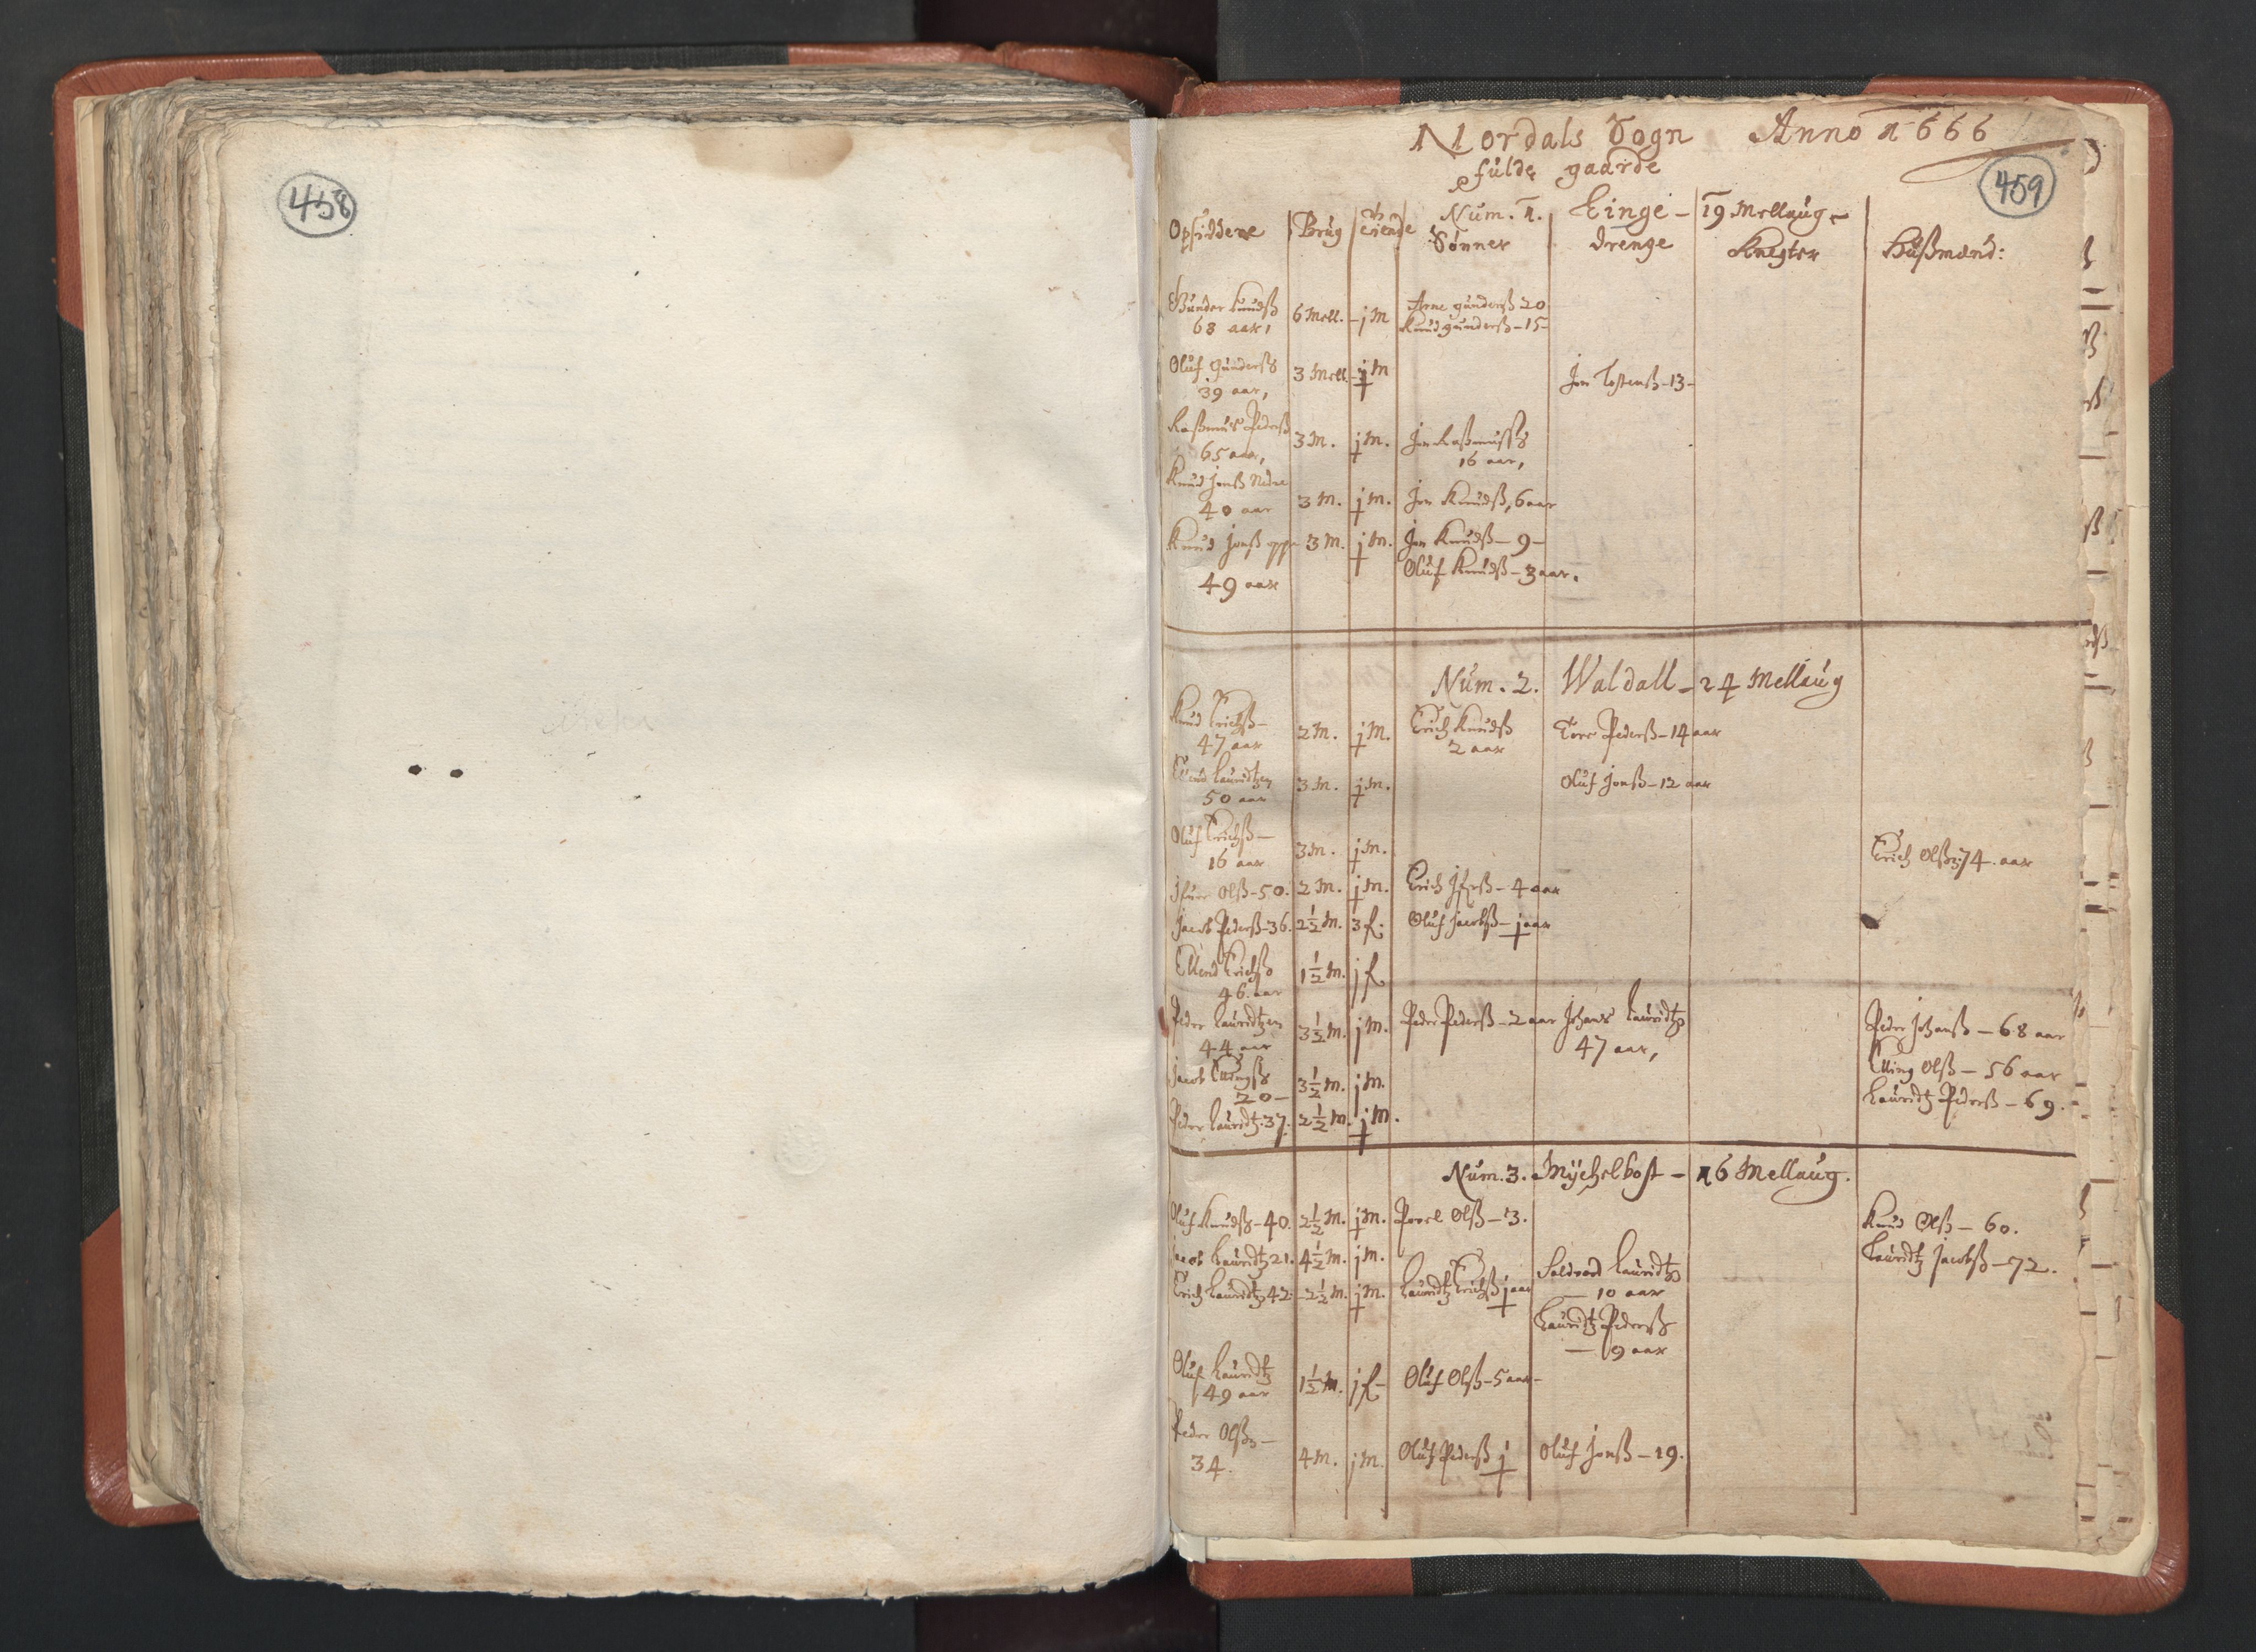 458
Nordals Sogn Anno 1666
459
fulde gaarde
Num. 1. Einge - 19 Mellaug -
Opsiddere Brug Sønner drenge Knegter Hussmænd:
Gunder Knudß 6 Mell. - j M Arne gunderß 20
68 aar, Knud gunderß - 15 -
Oluf Gunderß 3 Mell. - j M Jon Tostenß - 13 -
39 aar,
Raßmus Pederß 3 M. j M. Jon Raßmusß
65 aar, 16 aar,
Knud Jonß Nedre 3 M. j M. Jon Knudß, 6 aar
40 aar
Knud Jonß 3 M. j M. Jon Knudß - 9 -
Oluf Knudß - 3 aar.
49 aar
Num. 2. Waldall - 24 Mellaug
Knud Erichß - 2 M. j M. Erich Knudß Tore Pederß - 14 aar
47 aar 2 aar
Ellend Lauridtzen 3 M. j M. Oluf Jonß - 12 aar
50 aar
Oluf Erichß - 3 M. j M. Erich Olß 74. aar
16 aar
Ifuer Olß - 50. 2 M. j M. Erich Ifrß - 4 aar
Jacob Pederß - 36. 2½ M. 3 f: Oluf Jacobß - j aar
Ellend Erichß 1½ M. j f.
46. aar
Peder Lauridtzen 3½ M. j M. Peder Pederß - 2 aar Johans Lauridtz Peder Johanß - 68 aar
44 aar 47 aar,
Jacob Ellingß 3½ M. j M. Elling Olß - 56 aar
20 - Lauridtz Pederß - 69.
Peder Lauridtz. 37. 2½ M. j M.
Num. 3. Mychelbost - 16 Mellaug.
Oluf Knudß - 40. 2½ M. j M. Povel Olß - 13. Knud Olß - 60.
Jacob Lauridtz 21. 4½ M. j M. Lauridtz Jacobß - 72.
Erich Lauridtz 42. 2½ M. j M. Lauridtz Erichß j aar Lauridtz
10 aar
Lauridtz Pederß
9 aar
Oluf Lauridtz 1½ M. j f - Oluf Olß - 5 aar -
49 aar
Peder Olß - 4 M. j M. Oluf Pederß j Oluf Jonß - 19.
34.